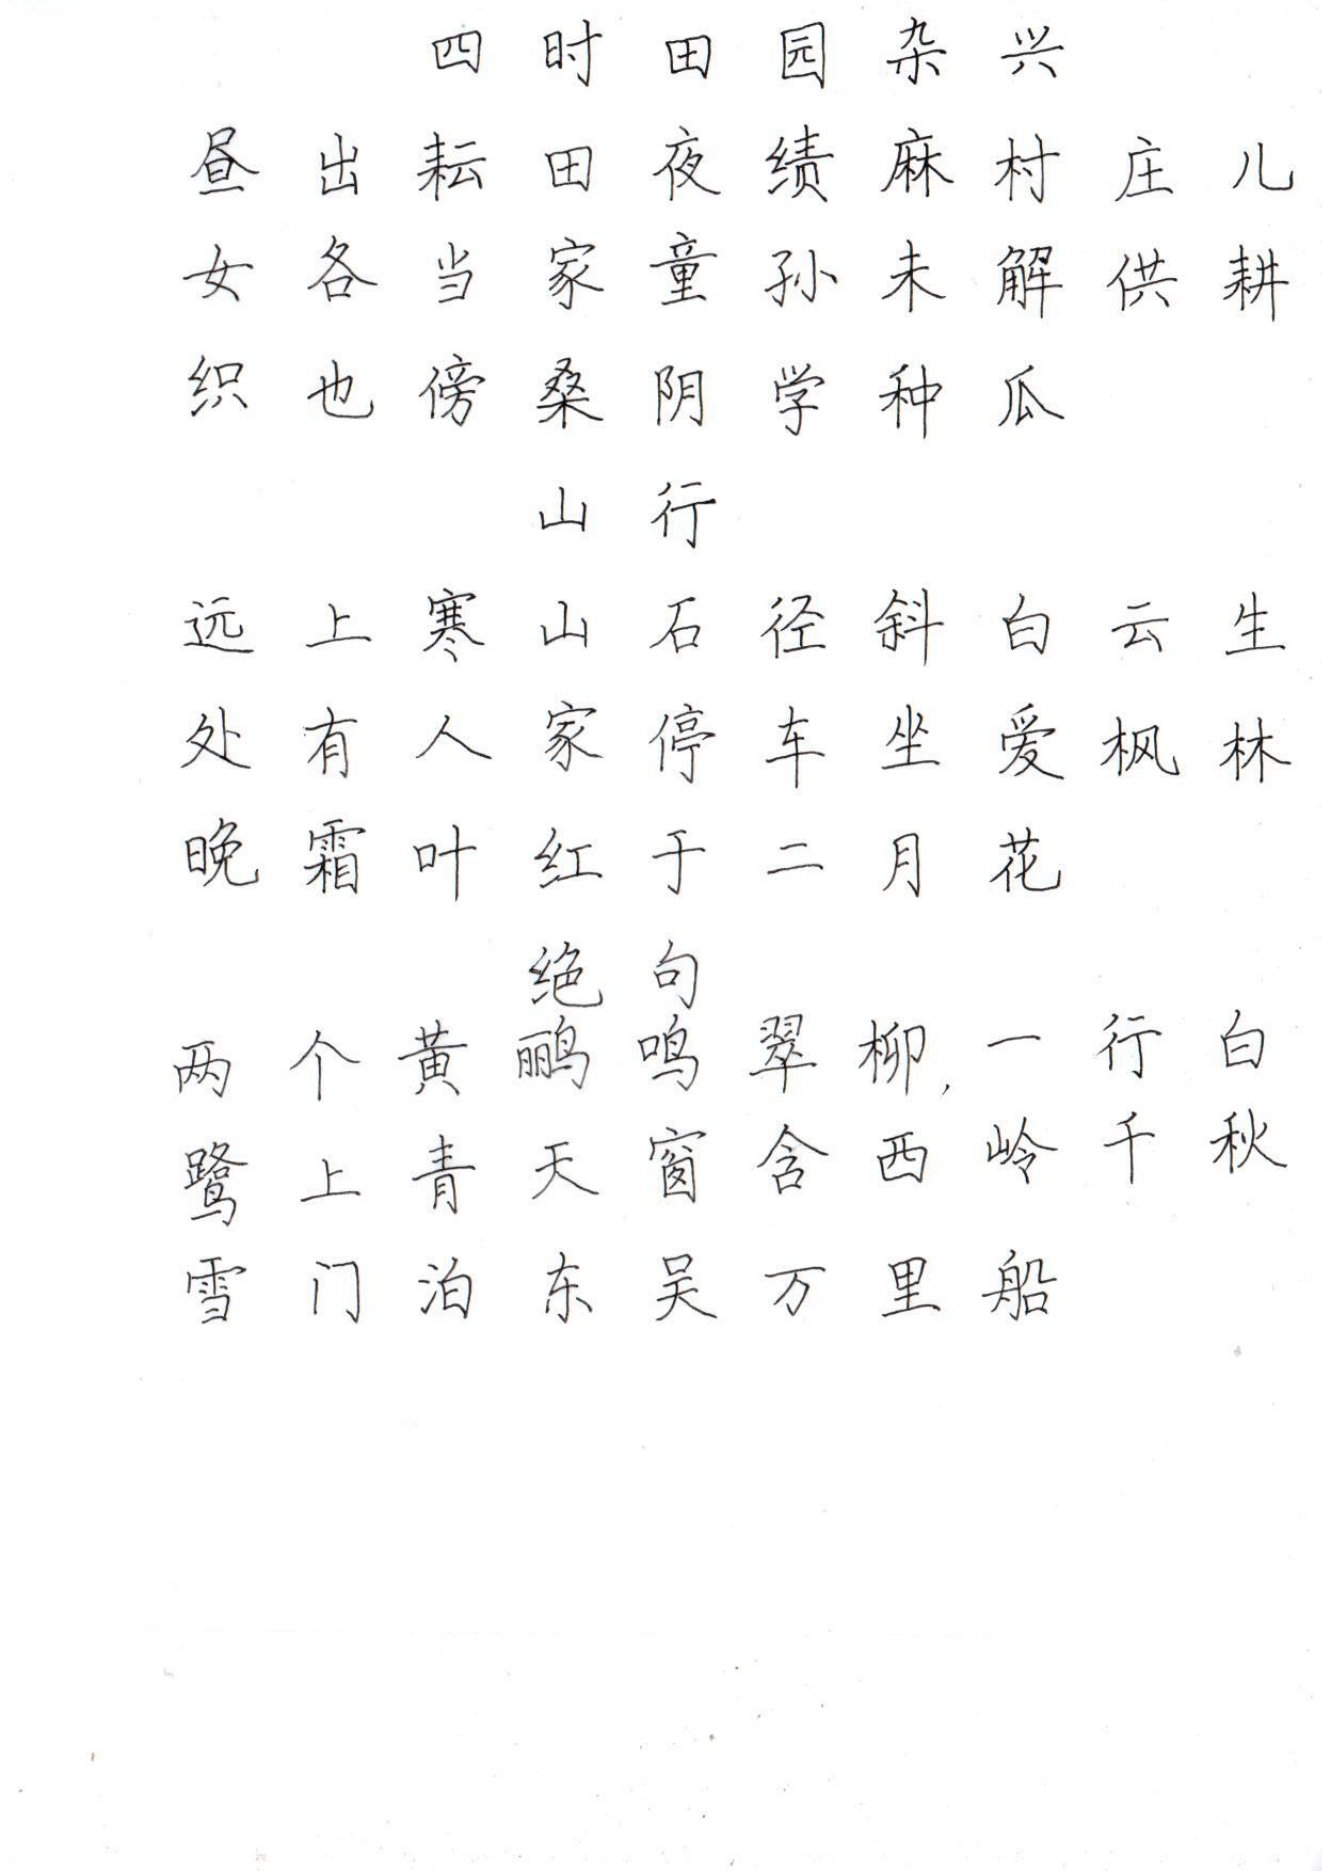 四时田园杂兴
昼出耘田夜绩麻村庄儿
女各当家童孙未解供耕
织也傍桑阴学种瓜
山行
远上寒山石径斜白云生
处有人家停车坐爱枫林
晚霜叶红于二月花
绝句
两个黄鹂鸣翠柳，一行白
鹭上青天窗含西岭千秋
雪门泊东吴万里船